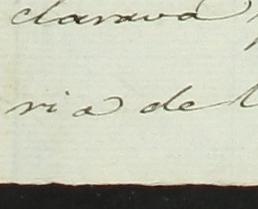 clarava
ria de l